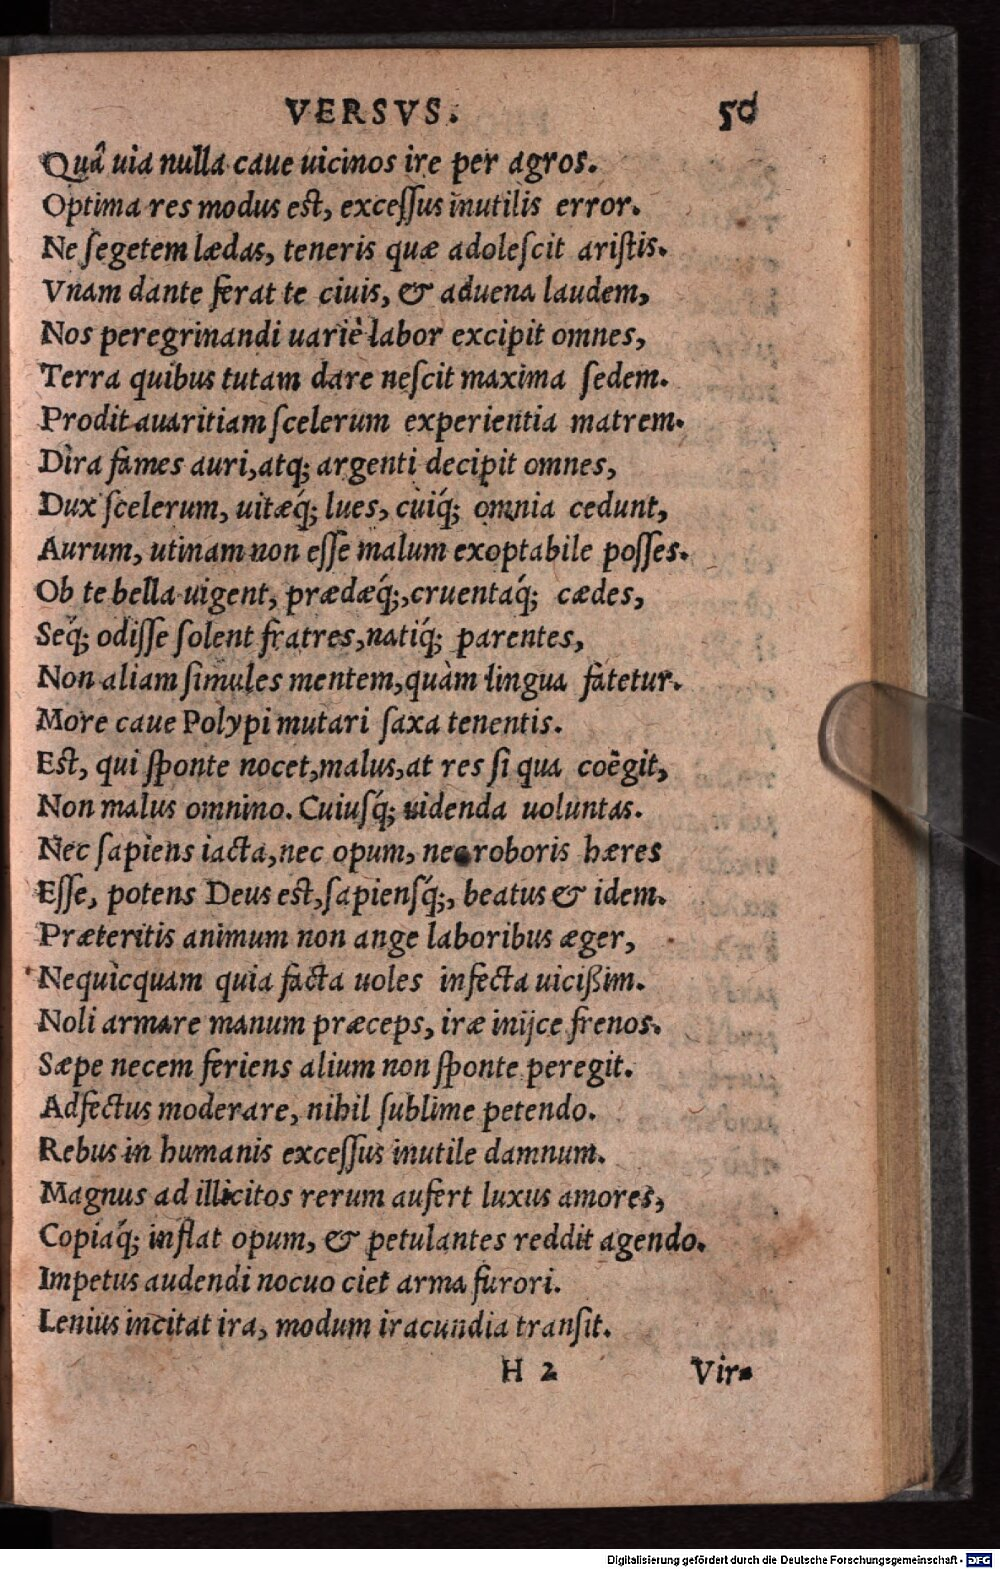 VERSVS. 50
Quâ uia nulla caue uicinos ire per agros.
Optima res modus est, excessus inutilis error.
Ne segetem lædas, teneris quæ adolescit aristis.
Vnam dante ferat te ciuis, & aduena laudem,
Nos peregrinandi uariè labor excipit omnes,
Terra quibus tutam dare nescit maxima sedem.
Prodit auaritiam scelerum experientia matrem.
Dira fames auri, atq; argenti decipit omnes,
Dux scelerum, uitæq́; lues, cuiq́; omnia cedunt,
Aurum, utinam non esse malum exoptabile posses.
Ob te bella uigent, prædæq́;, cruentaq́; cædes,
Seq́; odisse solent fratres, natiq́; parentes,
Non aliam simules mentem, quàm lingua fatetur.
More caue Polypi mutari saxa tenentis.
Est, qui sponte nocet, malus, at res si qua coëgit,
Non malus omnino. Cuiusq́; uidenda uoluntas.
Nec sapiens iacta, nec opum, nec roboris hæres
Esse, potens Deus est, sapiensq́;, beatus & idem.
Præteritis animum non ange laboribus æger,
Nequicquam quia facta uoles infecta uicißim.
Noli armare manum præceps, iræ inijce frenos.
Sæpe necem feriens alium non sponte peregit.
Adfectus moderare, nihil sublime petendo.
Rebus in humanis excessus inutile damnum.
Magnus ad illicitos rerum aufert luxus amores,
Copiaq́; inflat opum, & petulantes reddit agendo.
Impetus audendi nocuo ciet arma furori.
Lenius incitat ira, modum iracundia transit.
H 2 Vir-
Digitalisierung gefördert durch die Deutsche Forschungsgemeinschaft - DFG